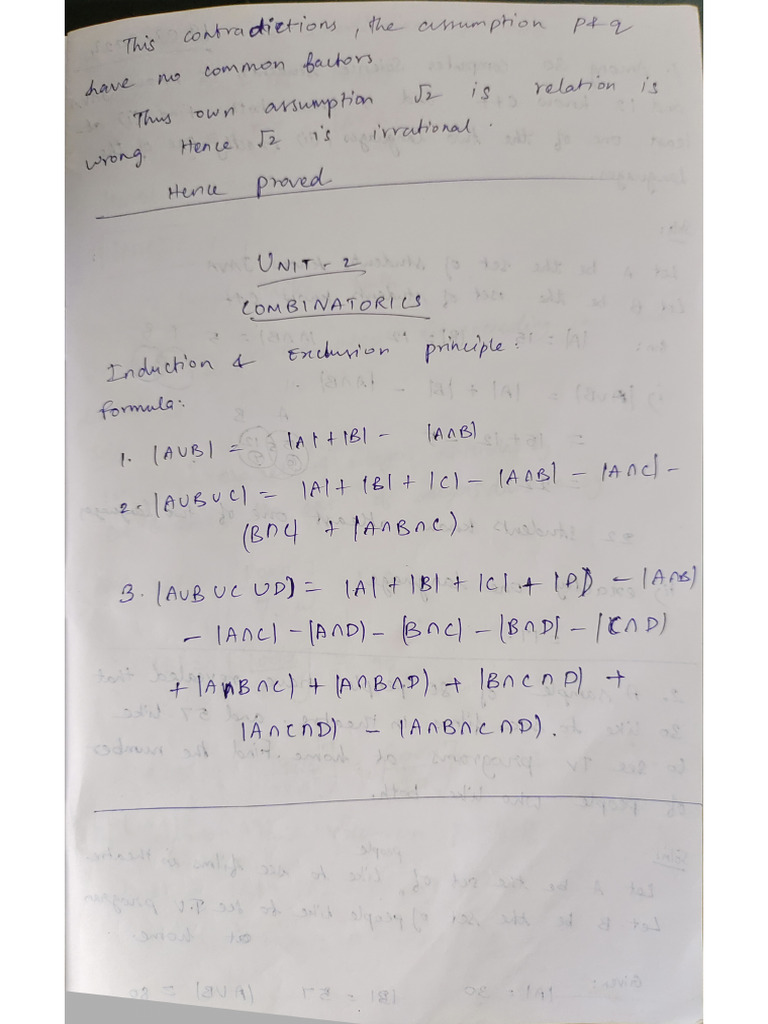 This contradictions, the assumption p & q
have no common factors
Thus own assumption √2 is relation is
wrong Hence √2 is irrational.
Hence proved
UNIT - 2
COMBINATORICS
Induction & Exclusion principle:
formula:
1. |A∪B| = |A|+|B| - |A∩B|
2. |A∪B∪C| = |A|+ |B| + |C| - |A∩B| - |A∩C| -
(B∩C| + |A∩B∩C).
3. |A∪B∪C∪D) = |A|+|B|+|C|+|D| - |A∩B)
- |A∩C| - |A∩D) - (B∩C| - |B∩D| - |C∩D)
+ |A∩B∩C) + (A∩B∩D) + |B∩C∩D) +
|A∩C∩D) - |A∩B∩C∩D).